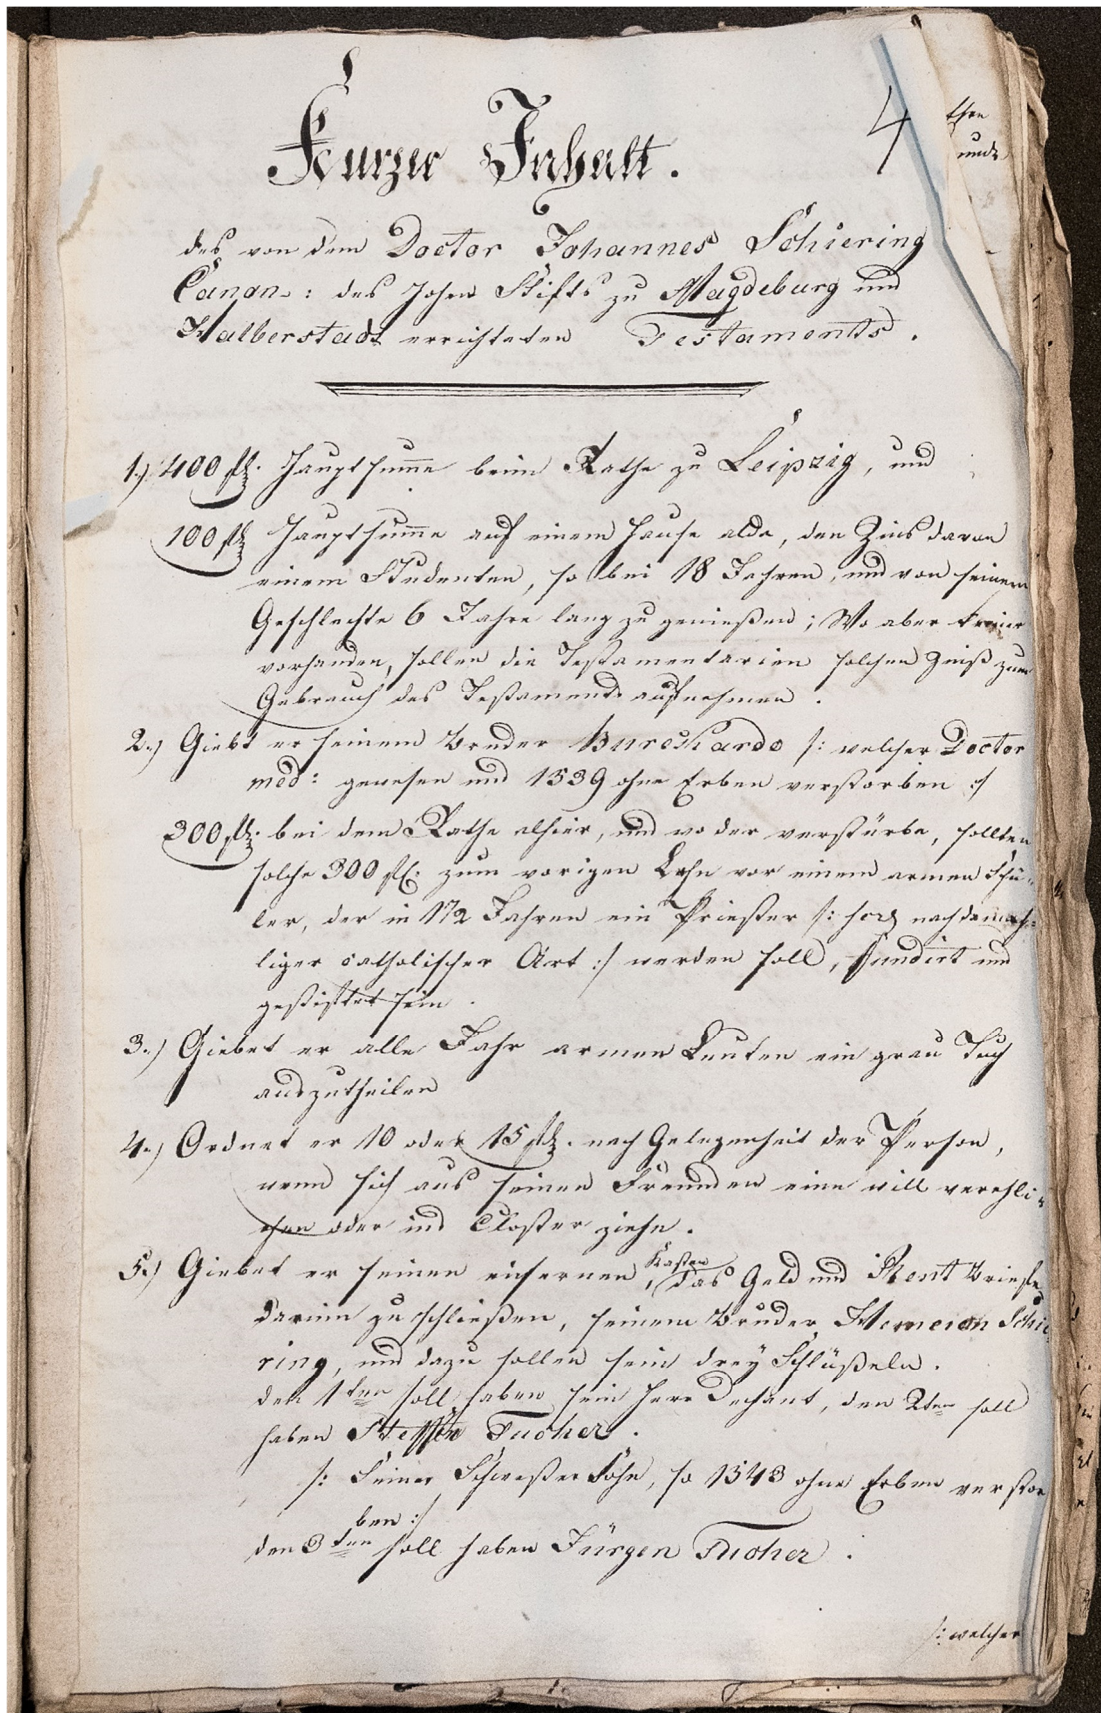 4
Kurzer Inhalt.
des von dem Doctor Johannes Schiering
Canon: des hohen Stifts zu Magdeburg und
Halberstadt errichteten Testaments.
1.) 400 fl. Hauptsumme beim Rathe zu Leipzig, und
100 fl. Hauptsumme auf einem Hause alda, den Zins davon
einem Studenten, so bei 18 Jahren, und von seinem
Geschlechte 6 Jahre lang zu genießen; Wo aber keiner
vorhanden, sollen die Testamentarien solchen Zinß zum
Gebrauch des Testaments aufnehmen.
2.) Giebt er seinem Bruder Burchardo /: welcher Doctor
med: gewesen und 1539 ohne Erben verstorben :/
300 fl. bei dem Rathe alhier, und wo der verstürbe, sollten
solche 300 fl. zum vorigen Lehn vor einem armen Schü-
ler, der in 1 1/2 Jahren ein Priester /: nach damah-
liger catholischer Art :/ werden soll, fundirt und
gestiftet sein.
3.) Giebet er alle Jahr armen Leuten ein grau Tuch
auszutheilen
4.) Ordnet er 10 oder 15 fl. nach Gelegenheit der Person,
wenn sich aus seinen Freunden eine will verehli-
chen oder ins Closter ziehn.
5.) Giebet er seinen eisernen Kasten, das Geld und Rent Briefe
darinn zu schließen, seinem Bruder Schie-
ring, und dazu sollen sein drey Schlüßeln.
den 1ten soll haben sein Herr Dechant, den 2ten soll
haben Steffen Tucher.
/: Seiner Schwester Sohn, so 1543 ohne Erben verstor
ben :/
den 3ten soll haben Jürgen Tucher.
/: welcher